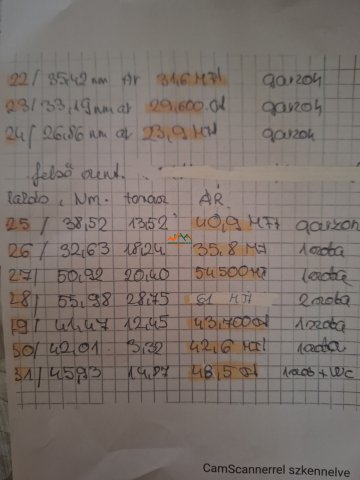 22/ 35,42 nm Ár 31,6 MFt garzon
23/ 33,19 nm ár 29,600.0t garzon
24/ 26,86 nm ár 23,9 MFt garzon
felső szint.
Nm. terasz ÁR
25/ 38,52 13,52 40,9 MFt garzon
26/ 32,63 18,24 35,8 MFt 1 szoba
27/ 50,92 20,40 54500 MFt 1 szoba
28/ 55,98 28,75 61 MFt 2 szoba
29/ 41,47 12,45 43,700 1 szoba
30/ 42,01 3,32 42,6 MFt 1 szoba
31/ 45,93 14,87 48,5 1 szob + WC
CamScannerrel szkennelve